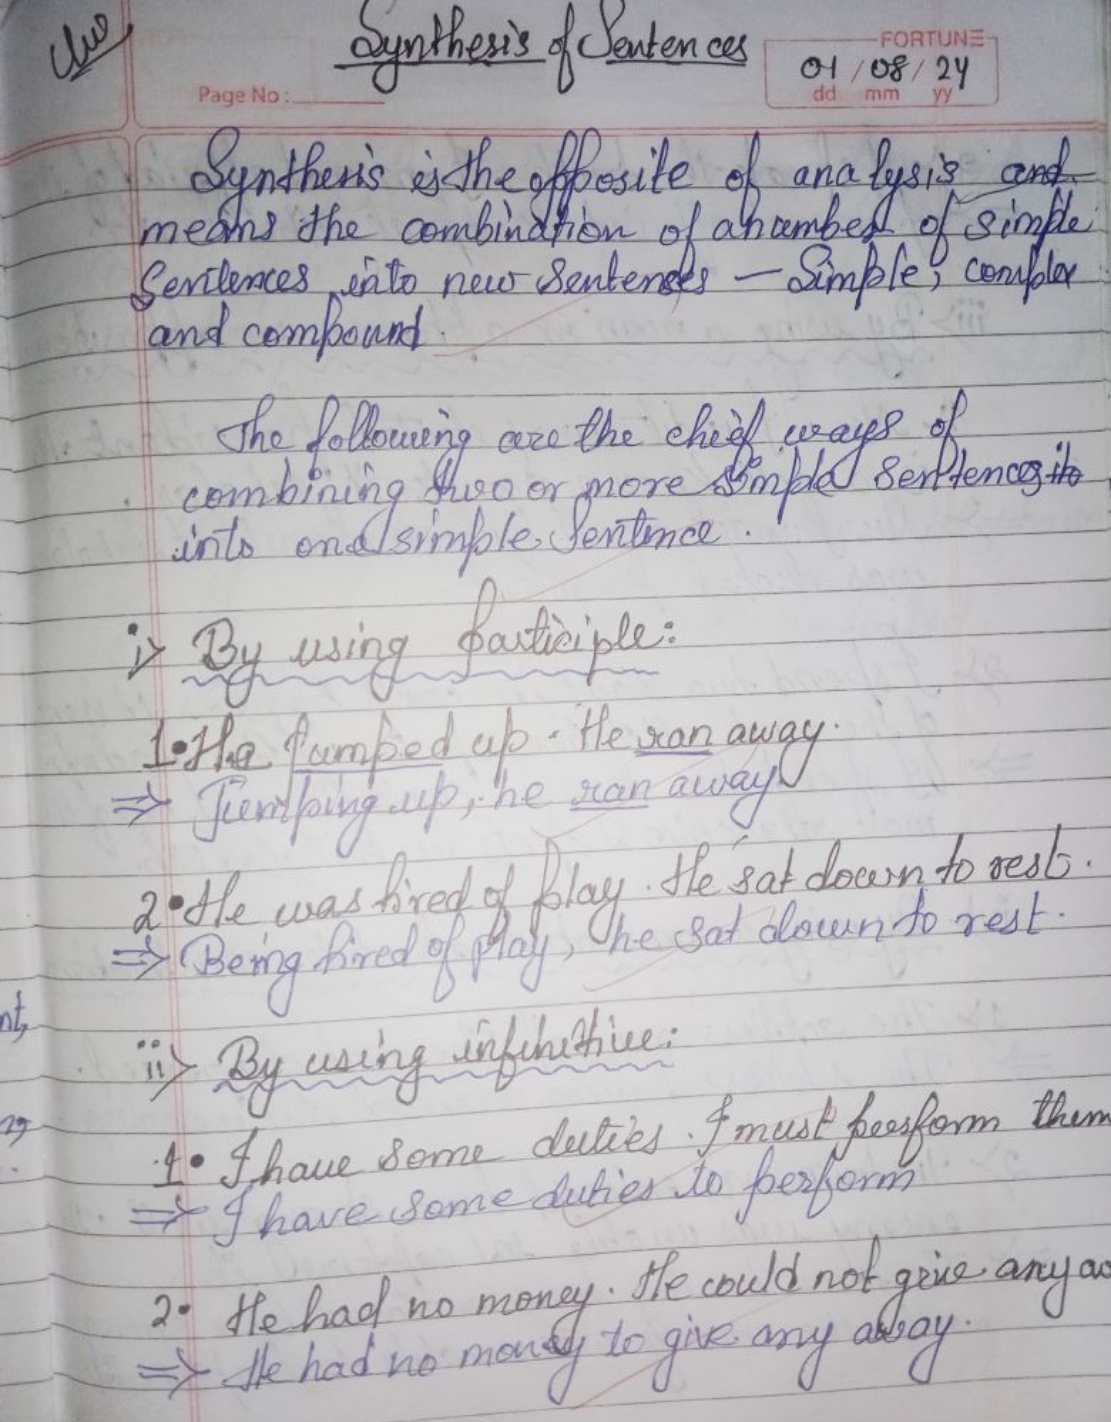 Synthesis of Sentences
FORTUNE
01/08/24
Page No:
dd mm yy
Synthesis is the opposite of analysis and
means the combination of a number of simple
Sentences into new Sentences — Simple, complex
and compound.
The following are the chief ways of
combining two or more simple sentences
into one simple Sentence.
i> By using participle:
1. He jumped up. He ran away.
⇒ Jumping up, he ran away
2. He was tired of play. He sat down to rest.
⇒ Being tired of play, he sat down to rest.
ii> By using infinitive:
1. I have some duties. I must perform them
⇒ I have some duties to perform
2. He had no money. He could not give any
⇒ He had no money to give any away.